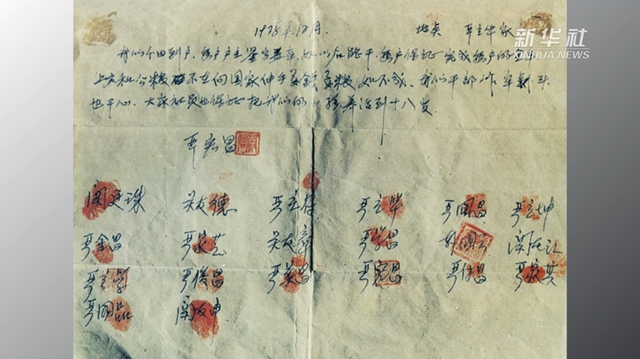 新华社
XINHUA NEWS
1978年12月 地点 严立华家
我们分田到户,每户户主签字盖章,如以后能干,每户保证完成每户的
上交和公粮,不在向国家伸手要钱要粮,如不成,我们干部作牢刹头
也干心,大家社员也保证把我们的小孩养活到十八岁
严宏昌
关廷珠 关友德 严立符 严立华 严国昌 严立坤
严金昌 严家芝 关友章 严学昌 韩国云 关友江
严立学 严俊昌 严美昌 严宏昌 严付昌 严家其
严国品 关友申